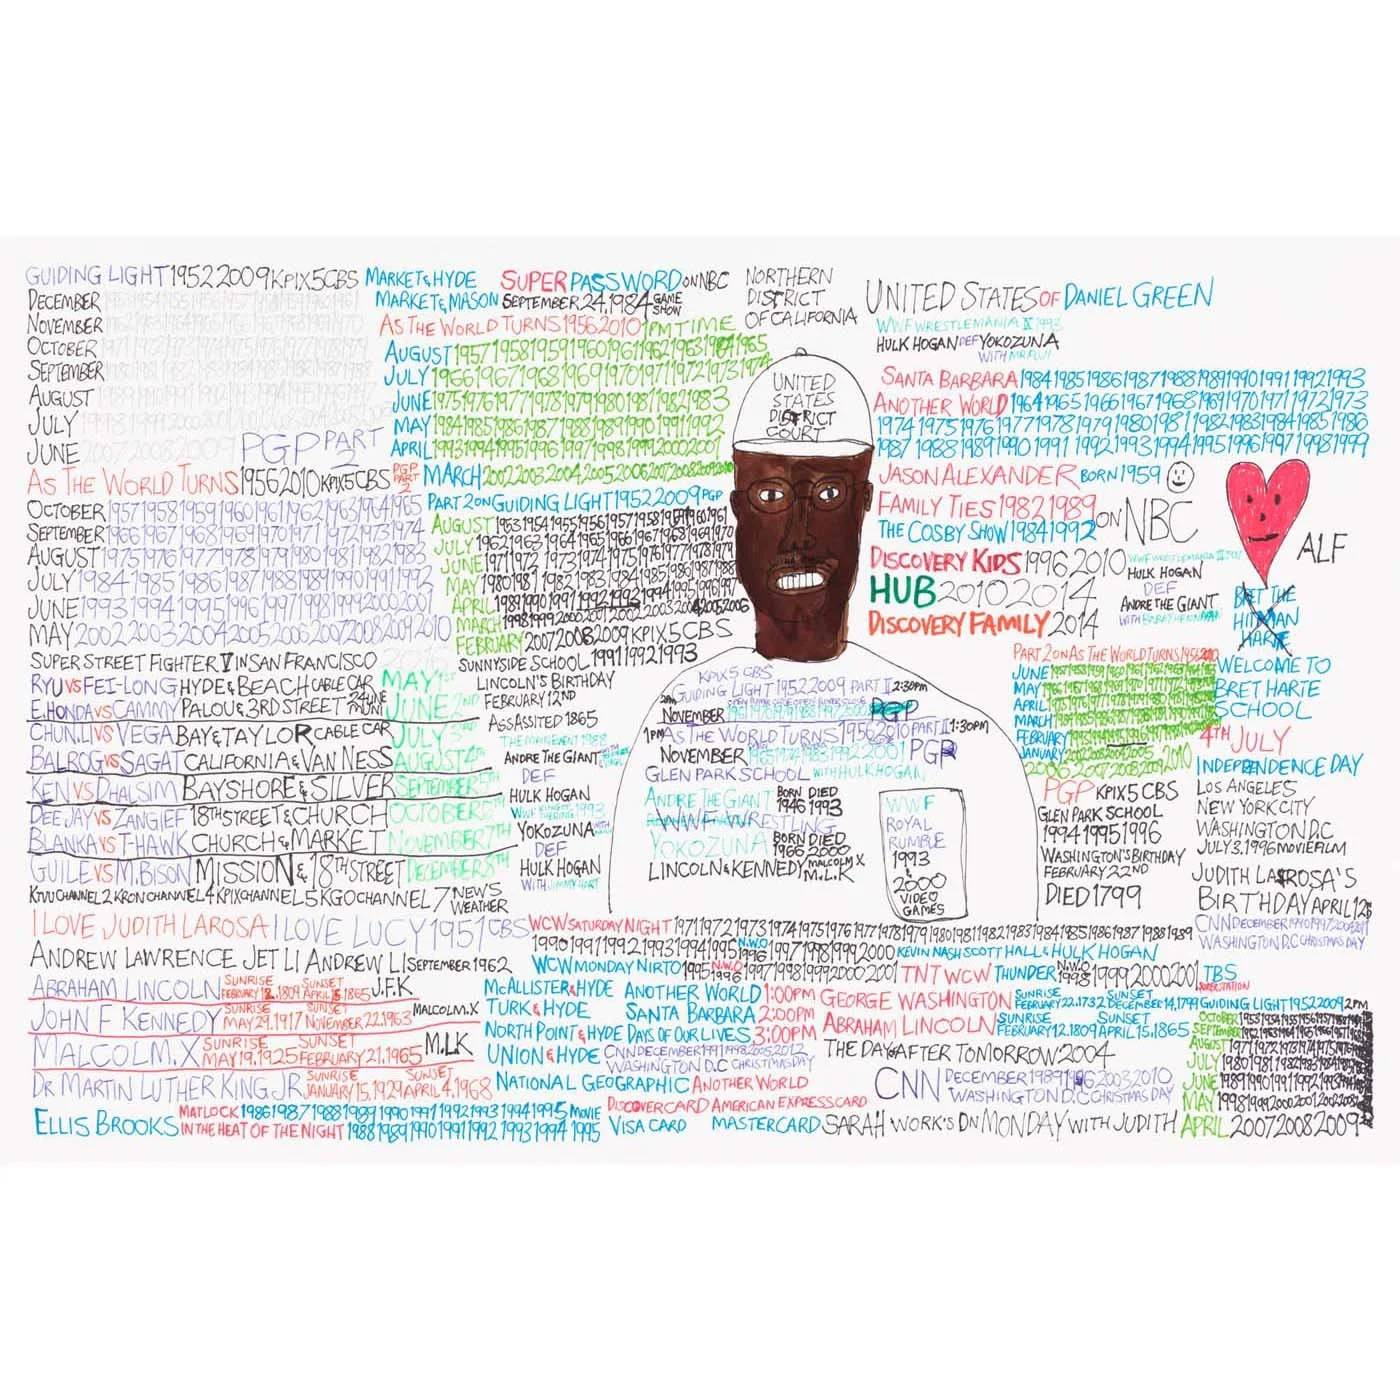 GUIDING LIGHT 1952 2009 KPIX 5 CBS
DECEMBER
NOVEMBER
OCTOBER
SEPTEMBER
AUGUST
JULY
JUNE 2007 2008 2009 PGP PART 2
AS THE WORLD TURNS 1956 2010 KPIX 5 CBS PGP PART 2
OCTOBER 1957 1958 1959 1960 1961 1962 1963 1964 1965
SEPTEMBER 1966 1967 1968 1969 1970 1971 1972 1973 1974
AUGUST 1975 1976 1977 1978 1979 1980 1981 1982 1983
JULY 1984 1985 1986 1987 1988 1989 1990 1991 1992
JUNE 1993 1994 1995 1996 1997 1998 1999 2000 2001
MAY 2002 2003 2004 2005 2006 2007 2008 2009 2010
SUPER STREET FIGHTER V IN SAN FRANCISCO
RYU VS FEI-LONG HYDE & BEACH CABLE CAR MAY 1ST
E.HONDA VS CAMMY PALOU & 3RD STREET JUNE 2ND
CHUN.LI VS VEGA BAY & TAYLOR CABLE CAR JULY 3RD
BALROG VS SAGAT CALIFORNIA & VAN NESS AUGUST 4TH
KEN VS DHALSIM BAYSHORE & SILVER SEPTEMBER 5TH
DEE JAY VS ZANGIEF 18TH STREET & CHURCH OCTOBER 6TH
BLANKA VS T-HAWK CHURCH & MARKET NOVEMBER 7TH
GUILE VS M.BISON MISSION & 18TH STREET DECEMBER 8TH
KTVU CHANNEL 2 KRON CHANNEL 4 KPIX CHANNEL 5 KGO CHANNEL 7 NEWS WEATHER
I LOVE JUDITH LAROSA I LOVE LUCY 1951 CBS
ANDREW LAWRENCE JET LI ANDREW LI SEPTEMBER 1962
ABRAHAM LINCOLN SUNRISE FEBRUARY 12.1809 SUNSET APRIL 15 1865 J.F.K
JOHN F KENNEDY SUNRISE MAY 29.1917 SUNSET NOVEMBER 22.1963 MALCOLM.X
MALCOLM.X SUNRISE MAY 19.1925 SUNSET FEBRUARY 21.1965 M.L.K
DR MARTIN LUTHER KING JR SUNRISE JANUARY 15.1929 SUNSET APRIL 4.1968
ELLIS BROOKS MATLOCK 1986 1987 1988 1989 1990 1991 1992 1993 1994 1995 MOVIE
IN THE HEAT OF THE NIGHT 1988 1989 1990 1991 1992 1993 1994 1995
MARKET & HYDE
MARKET & MASON
SUPER PASSWORD ON NBC
SEPTEMBER 24.1984 GAME SHOW
AS THE WORLD TURNS 1956 2010 1PM TIME
AUGUST 1957 1958 1959 1960 1961 1962 1963 1964 1965
JULY 1966 1967 1968 1969 1970 1971 1972 1973 1974
JUNE 1975 1976 1977 1978 1979 1980 1981 1982 1983
MAY 1984 1985 1986 1987 1988 1989 1990 1991 1992
APRIL 1993 1994 1995 1996 1997 1998 1999 2000 2001
MARCH 2002 2003 2004 2005 2006 2007 2008 2009 2010
PART 2 ON GUIDING LIGHT 1952 2009 PGP
AUGUST 1953 1954 1955 1956 1957 1958 1959 1960 1961
JULY 1962 1963 1964 1965 1966 1967 1968 1969 1970
JUNE 1971 1972 1973 1974 1975 1976 1977 1978 1979
MAY 1980 1981 1982 1983 1984 1985 1986 1987 1988
APRIL 1989 1990 1991 1992 1993 1994 1995 1996 1997
MARCH 1998 1999 2000 2001 2002 2003 2004 2005 2006
FEBRUARY 2007 2008 2009 KPIX 5 CBS
SUNNYSIDE SCHOOL 1991 1992 1993
LINCOLN'S BIRTHDAY
FEBRUARY 12ND
ASSASSITED 1865
THE MAIN EVENT 1988
ANDRE THE GIANT
DEF
HULK HOGAN
YOKOZUNA
DEF
HULK HOGAN
WITH JIMMY HART
NORTHERN
DISTRICT
OF CALIFORNIA
UNITED
STATES
DISTRICT
COURT
KPIX 5 CBS
GUIDING LIGHT 1952 2009 PART II 2:30PM
NOVEMBER PGP
1PM AS THE WORLD TURNS 1956 2010 PART II 1:30PM
NOVEMBER 1965 1974 1983 1992 2001 PGP
GLEN PARK SCHOOL WITH HULK HOGAN
ANDRE THE GIANT BORN 1946 DIED 1993
WWF WRESTLING
YOKOZUNA BORN 1966 DIED 2000
LINCOLN & KENNEDY MALCOLM.X M.L.K
WWF
ROYAL
RUMBLE
1993
&
2000
VIDEO
GAMES
UNITED STATES OF DANIEL GREEN
WWF WRESTLEMANIA IX 1993
HULK HOGAN DEF YOKOZUNA
WITH MR FUJI
SANTA BARBARA 1984 1985 1986 1987 1988 1989 1990 1991 1992 1993
ANOTHER WORLD 1964 1965 1966 1967 1968 1969 1970 1971 1972 1973
1974 1975 1976 1977 1978 1979 1980 1981 1982 1983 1984 1985 1986
1987 1988 1989 1990 1991 1992 1993 1994 1995 1996 1997 1998 1999
JASON ALEXANDER BORN 1959
FAMILY TIES 1982 1989
THE COSBY SHOW 1984 1992 ON NBC
DISCOVERY KIDS 1996 2010
HUB 2010 2014
DISCOVERY FAMILY 2014
HULK HOGAN
DEF
ANDRE THE GIANT
ALF
BRET THE
HITMAN
HARTE
WELCOME TO
BRET HARTE
SCHOOL
4TH JULY
INDEPENDENCE DAY
LOS ANGELES
NEW YORK CITY
WASHINGTON D.C
JULY 3.1996 MOVIE FILM
JUDITH LAROSA'S
BIRTHDAY APRIL 12
CNN DECEMBER
WASHINGTON D.C CHRISTMAS DAY
PART 2 ON AS THE WORLD TURNS 1956 2010
JUNE
MAY
APRIL
MARCH
FEBRUARY
JANUARY
2006 2007 2008 2009 2010
PGP KPIX 5 CBS
GLEN PARK SCHOOL
1994 1995 1996
WASHINGTON'S BIRTHDAY
FEBRUARY 22ND
DIED 1799
WCW SATURDAY NIGHT 1971 1972 1973 1974 1975 1976 1977 1978 1979 1980 1981 1982 1983 1984 1985 1986 1987 1988 1989
1990 1991 1992 1993 1994 1995 N.W.O 1996 1997 1998 1999 2000 KEVIN NASH SCOTT HALL & HULK HOGAN
WCW MONDAY NIRTO 1995 N.W.O 1996 1997 1998 1999 2000 2001 TNT WCW THUNDER N.W.O 1998 1999 2000 2001 TBS SUPERSTATION
McALLISTER & HYDE ANOTHER WORLD 1:00PM
TURK & HYDE SANTA BARBARA 2:00PM
NORTH POINT & HYDE DAYS OF OUR LIVES 3:00PM
UNION & HYDE CNN DECEMBER 1991 1998 2005 2012
WASHINGTON D.C CHRISTMAS DAY
NATIONAL GEOGRAPHIC ANOTHER WORLD
DISCOVER CARD AMERICAN EXPRESS CARD
VISA CARD MASTERCARD
GEORGE WASHINGTON SUNRISE FEBRUARY 22.1732 SUNSET DECEMBER 14.1799
ABRAHAM LINCOLN SUNRISE FEBRUARY 12.1809 SUNSET APRIL 15.1865
THE DAY AFTER TOMORROW 2004
CNN DECEMBER 1989 1996 2003 2010
WASHINGTON D.C CHRISTMAS DAY
SARAH WORK'S ON MONDAY WITH JUDITH
GUIDING LIGHT 1952 2009 2PM
OCTOBER
SEPTEMBER
AUGUST
JULY
JUNE
MAY
APRIL 2007 2008 2009